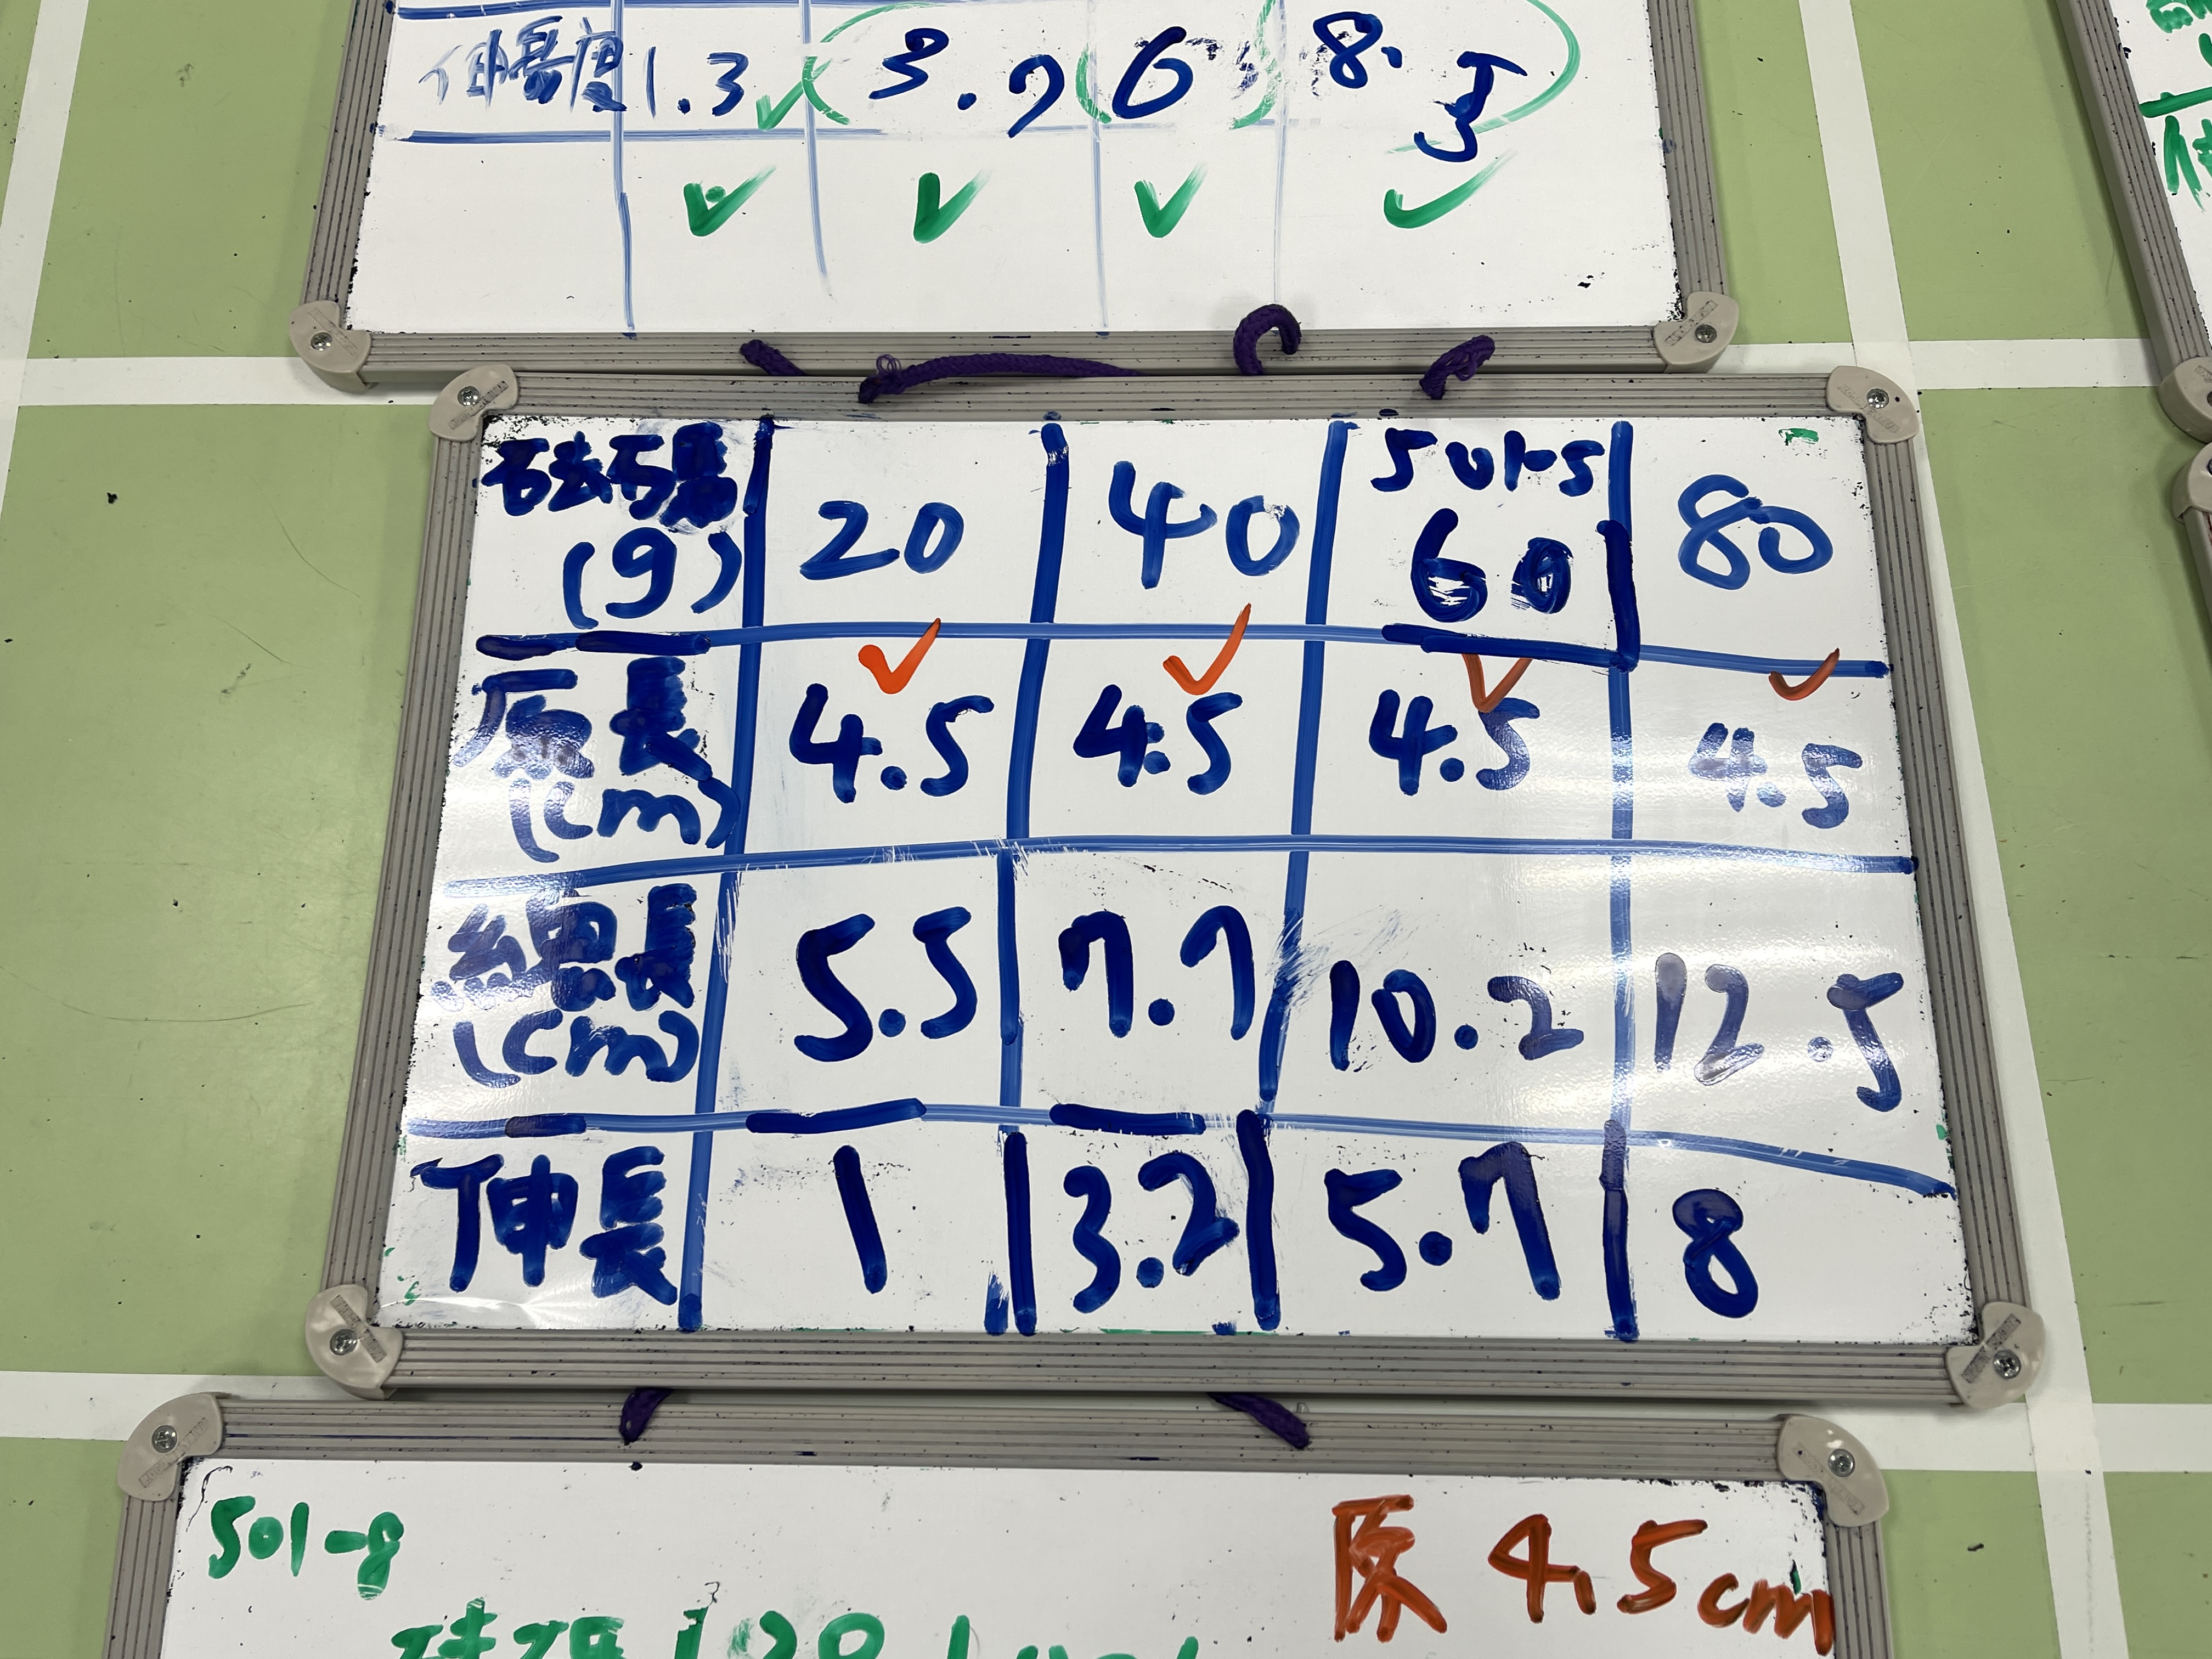 伸長度 1.3 3.7 6 8.5
砝碼 (g) 20 40 60 80
原長 (cm) 4.5 4.5 4.5 4.5
總長 (cm) 5.5 7.7 10.2 12.5
伸長 1 3.2 5.7 8
501-8
原 4.5cm
砝碼